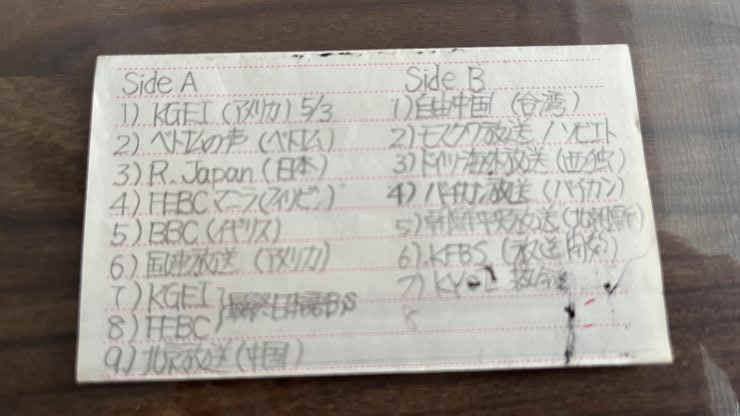 Side A
1) KGEI (アメリカ) 5/3
2) ベトナムの声 (ベトナム)
3) R. Japan (日本)
4) FEBC マニラ(フィリピン)
5) BBC (イギリス)
6) 国連放送 (アメリカ)
7) KGEI
8) FEBC
9) 北京放送 (中国)
Side B
1) 自由中国 (台湾)
2) モスクワ放送 / ソビエト
3) ドイツ海外放送 (西独)
4) バチカン放送 (バチカン)
5) 朝鮮中央放送 (北朝鮮)
6) KFBS (放送開始)
7)